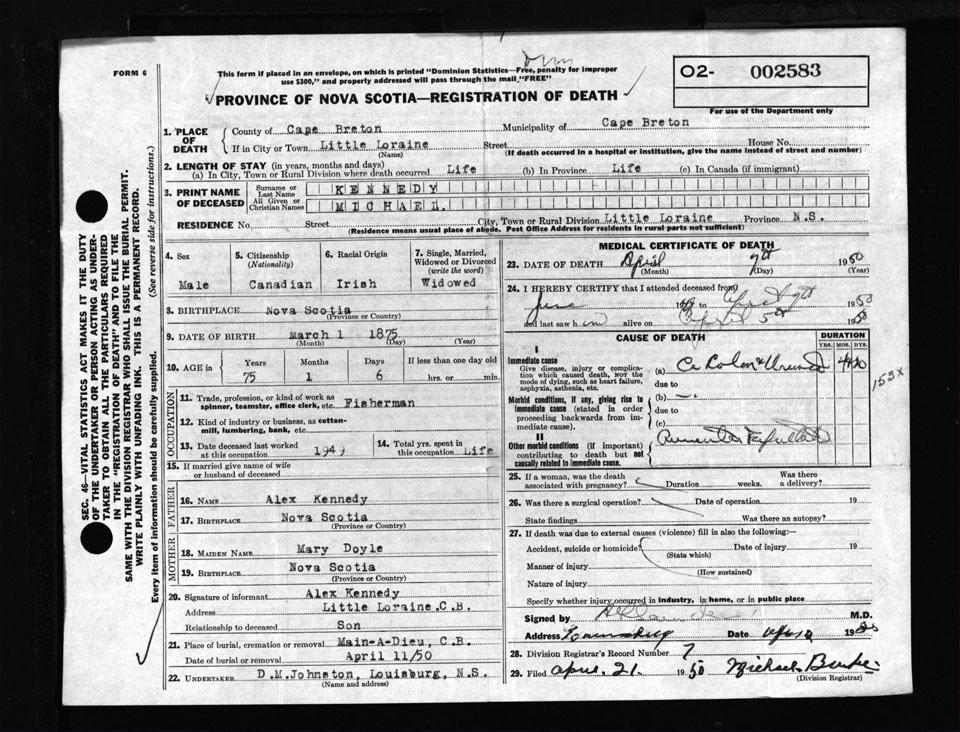 FORM 6
This form if placed in an envelope, on which is printed "Dominion Statistics—Free, penalty for improper
use $300," and properly addressed will pass through the mail, "FREE"
O2- 002583
For use of the Department only
PROVINCE OF NOVA SCOTIA—REGISTRATION OF DEATH
1. PLACE OF DEATH
County of Cape Breton Municipality of Cape Breton
If in City or Town Little Loraine Street House No.
(Name) (If death occurred in a hospital or institution, give the name instead of street and number)
2. LENGTH OF STAY (in years, months and days)
(a) In City, Town or Rural Division where death occurred Life (b) In Province Life (c) In Canada (if immigrant)
3. PRINT NAME OF DECEASED
Surname or Last Name KENNEDY
All Given or Christian Names MICHAEL
RESIDENCE No. Street City, Town or Rural Division Little Loraine Province N.S.
(Residence means usual place of abode. Post Office Address for residents in rural parts not sufficient)
4. Sex Male
5. Citizenship (Nationality) Canadian
6. Racial Origin Irish
7. Single, Married, Widowed or Divorced (write the word) Widowed
8. BIRTHPLACE Nova Scotia
(Province or Country)
9. DATE OF BIRTH March 1 1875
(Month) (Day) (Year)
10. AGE in Years 75 Months 1 Days 6 If less than one day old hrs. or min.
OCCUPATION
11. Trade, profession, or kind of work as
spinner, teamster, office clerk, etc. Fisherman
12. Kind of industry or business, as cotton-
mill, lumbering, bank, etc.
13. Date deceased last worked
at this occupation 1949
14. Total yrs. spent
in this occupation Life
15. If married give name of wife
or husband of deceased
FATHER
16. NAME Alex Kennedy
17. BIRTHPLACE Nova Scotia
(Province or Country)
MOTHER
18. MAIDEN NAME Mary Doyle
19. BIRTHPLACE Nova Scotia
(Province or Country)
20. Signature of informant Alex Kennedy
Address Little Loraine.C.B.
Relationship to deceased Son
21. Place of burial, cremation or removal Main-A-Dieu, C.B.
Date of burial or removal April 11/50
22. UNDERTAKER D.M.Johnston, Louisburg, N.S.
(Name and address)
MEDICAL CERTIFICATE OF DEATH
23. DATE OF DEATH April 7th 1950
(Month) (Day) (Year)
24. I HEREBY CERTIFY that I attended deceased from
June to 1950
and last saw h im alive on April 5th 1950
CAUSE OF DEATH DURATION
YRS. MOS. DYS.
I
Immediate cause
Give disease, injury or complication which caused death, NOT the mode of dying, such as heart failure, asphyxia, asthenia, etc.
(a) Ca Colon
due to
153X
Morbid conditions, if any, giving rise to immediate cause (stated in order proceeding backwards from immediate cause).
(b)
due to
(c)
II
Other morbid conditions (if important) contributing to death but not causally related to immediate cause.
25. If a woman, was the death
associated with pregnancy? Duration weeks. Was there a delivery?
26. Was there a surgical operation? Date of operation 19
State findings Was there an autopsy?
27. If death was due to external causes (violence) fill in also the following:—
Accident, suicide or homicide? Date of injury 19
(State which)
Manner of injury
(How sustained)
Nature of injury
Specify whether injury occurred in industry, in home, or in public place
Signed by M.D.
Address Louisburg Date 1950
28. Division Registrar's Record Number 7
29. Filed April 21. 1950 Michael Burke
(Division Registrar)
SEC. 46—VITAL STATISTICS ACT MAKES IT THE DUTY
OF THE UNDERTAKER OR PERSON ACTING AS UNDER-
TAKER TO OBTAIN ALL THE PARTICULARS REQUIRED
IN THE "REGISTRATION OF DEATH" AND TO FILE THE
SAME WITH THE DIVISION REGISTRAR WHO SHALL ISSUE THE BURIAL PERMIT.
WRITE PLAINLY WITH UNFADING INK. THIS IS A PERMANENT RECORD.
Every item of information should be carefully supplied. (See reverse side for instructions.)